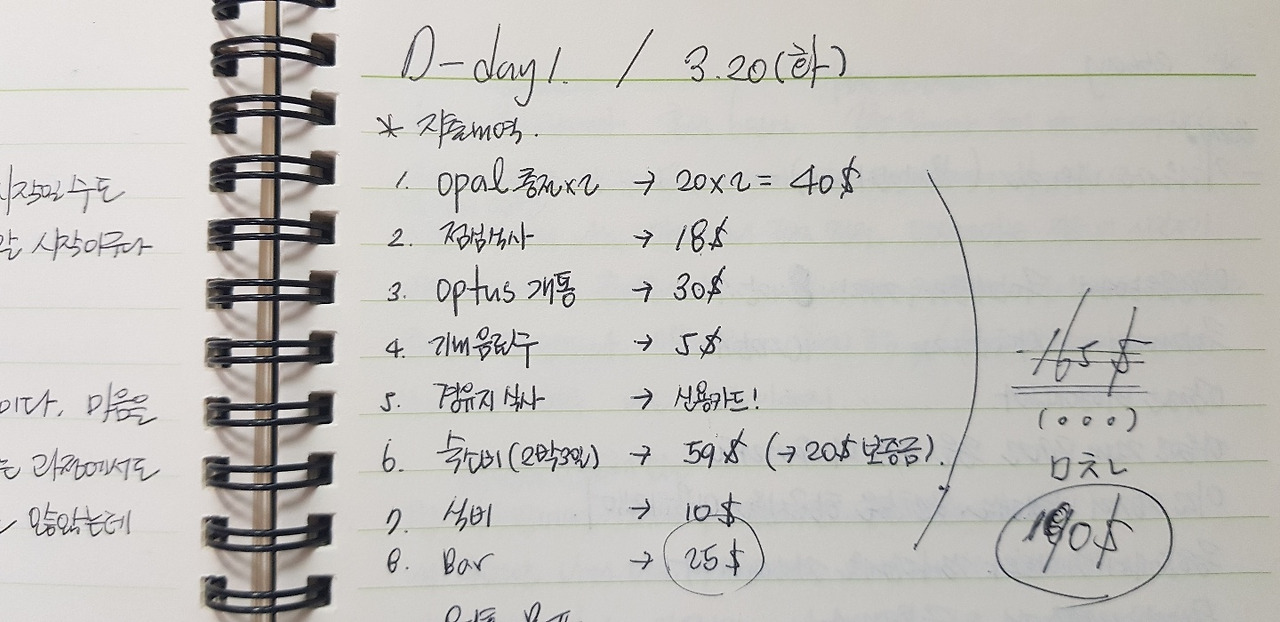 시작일 수도
시작이구나
이다. 마음을
과정에서도
않았는데
D-day 1. / 3.20(화)
* 지출내역.
1. opal 충전x2 → 20x2 = 40$
2. 점심식사 → 18$
3. Optus 개통 → 30$
4. 기내음료수 → 5$
5. 경유지 식사 → 신용카드!
6. 숙소비(2박3일) → 59$ (→20$ 보증금).
7. 식비 → 10$
8. Bar → 25$
165$
(ooo)
ㅁㅊㄴ
190$